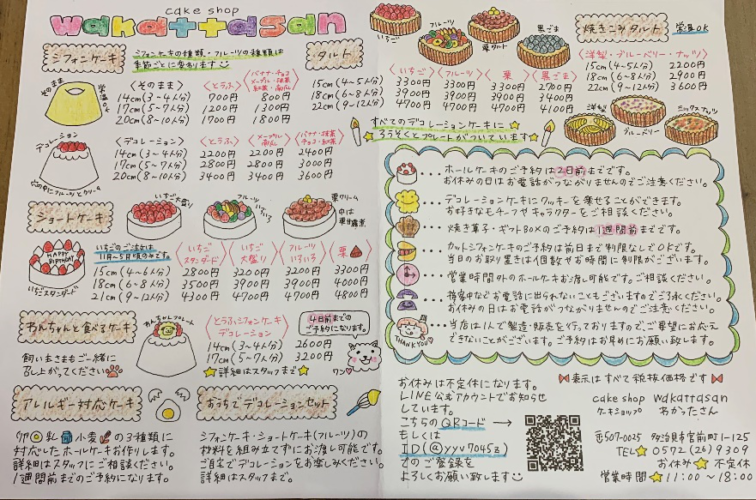 cake shop
wakattasan
シフォンケーキ
シフォンケーキの種類・フルーツの種類は
季節ごとに変わります
そのまま
常温OK
〈そのまま〉
〈とうふ〉
バナナ・チョコ
メープル・抹茶
紅茶・
14cm(3~4人分) 700円 800円
17cm(5~7人分) 1200円 1300円
20cm(8~10人分) 1700円 1800円
デコレーション
中にフルーツとクリーム
〈デコレーション〉
〈とうふ〉
メープル
バナナ・抹茶
チョコ・紅茶
14cm(3~4人分) 2200円 2200円 2400円
17cm(5~7人分) 2800円 2800円 3000円
20cm(8~10人分) 3400円 3400円 3600円
タルト
いちご
フルーツ
栗タルト
黒ごま
〈いちご〉〈フルーツ〉〈栗〉〈黒ごま〉
15cm(4~5人分) 3300円 3300円 3300円 2700円
18cm(6~8人分) 3900円 3900円 3900円 3400円
22cm(9~12人分) 4700円 4700円 4700円 4100円
焼きこみタルト
常温OK
〈洋梨・ブルーベリー・ナッツ〉
15cm(4~5人分) 2200円
18cm(6~8人分) 2900円
22cm(9~12人分) 3600円
洋梨
ブルーベリー
ミックスナッツ
すべてのデコレーションケーキに
ろうそくとプレートがついています
ショートケーキ
いちご大盛り
フルーツいろいろ
栗クリーム
HAPPY BIRTHDAY
いちごスタンダード
いちごのご注文は
11月~5月頃のみです。
いちごスタンダード
いちご大盛り
フルーツいろいろ
栗
15cm(4~6人分) 2800円 3200円 3200円 3300円
18cm(6~8人分) 3500円 3900円 3900円 4000円
21cm(9~12人分) 4300円 4700円 4700円 4800円
わんちゃんと食べるケーキ
わんちゃんプレート
飼い主さまもご一緒に
召し上がってください
〈とうふシフォンケーキ
デコレーション〉
4日前までの
ご予約になります。
14cm(3~4人分) 2600円
17cm(5~7人分) 3200円
詳細はスタッフまで
ワン
アレルギー対応ケーキ
卵 乳 小麦 の3種類に
対応したホールケーキお作りします。
詳細はスタッフにご相談ください。
1週間前までのご予約になります。
おうちでデコレーションセット
シフォンケーキ・ショートケーキ(フルーツ)の
材料を組み立てずにお渡し可能です。
ご自宅でデコレーションをお楽しみください。
詳細はスタッフまで。
・・・ホールケーキのご予約は2日前までです。
お休みの日はお電話がつながりませんのでご注意ください。
・・・デコレーションケーキにクッキーを乗せることができます。
お好きなモチーフやキャラクターをご相談ください。
・・・焼き菓子・ギフトBOXのご予約は1週間前までです。
・・・カットシフォンケーキのご予約は前日まで制限なしでOKです。
当日のお取り置きは個数やお時間に制限がございます。
・・・営業時間外のホールケーキお渡し可能です。ご相談ください。
・・・接客中などお電話に出られないこともございますのでご了承ください。
お休みの日はお電話がつながりませんのでご注意ください。
・・・当店は1人で製造・販売を行っておりますので、ご要望にお応え
できないことがございます。ご予約はお早めにお願い致します。
THANK YOU
お休みは不定休になります。
LINE公式アカウントでお知らせ
しています。
こちらのQRコード
もしくは
ID(@yyv7045z)
でのご登録を
よろしくお願い致します
表示はすべて税抜価格です
cake shop wakattasan
ケーキショップ わかったさん
〒507-0025 多治見市宮前町1-125
TEL 0572(26)9309
お休み 不定休
営業時間 11:00~18:00